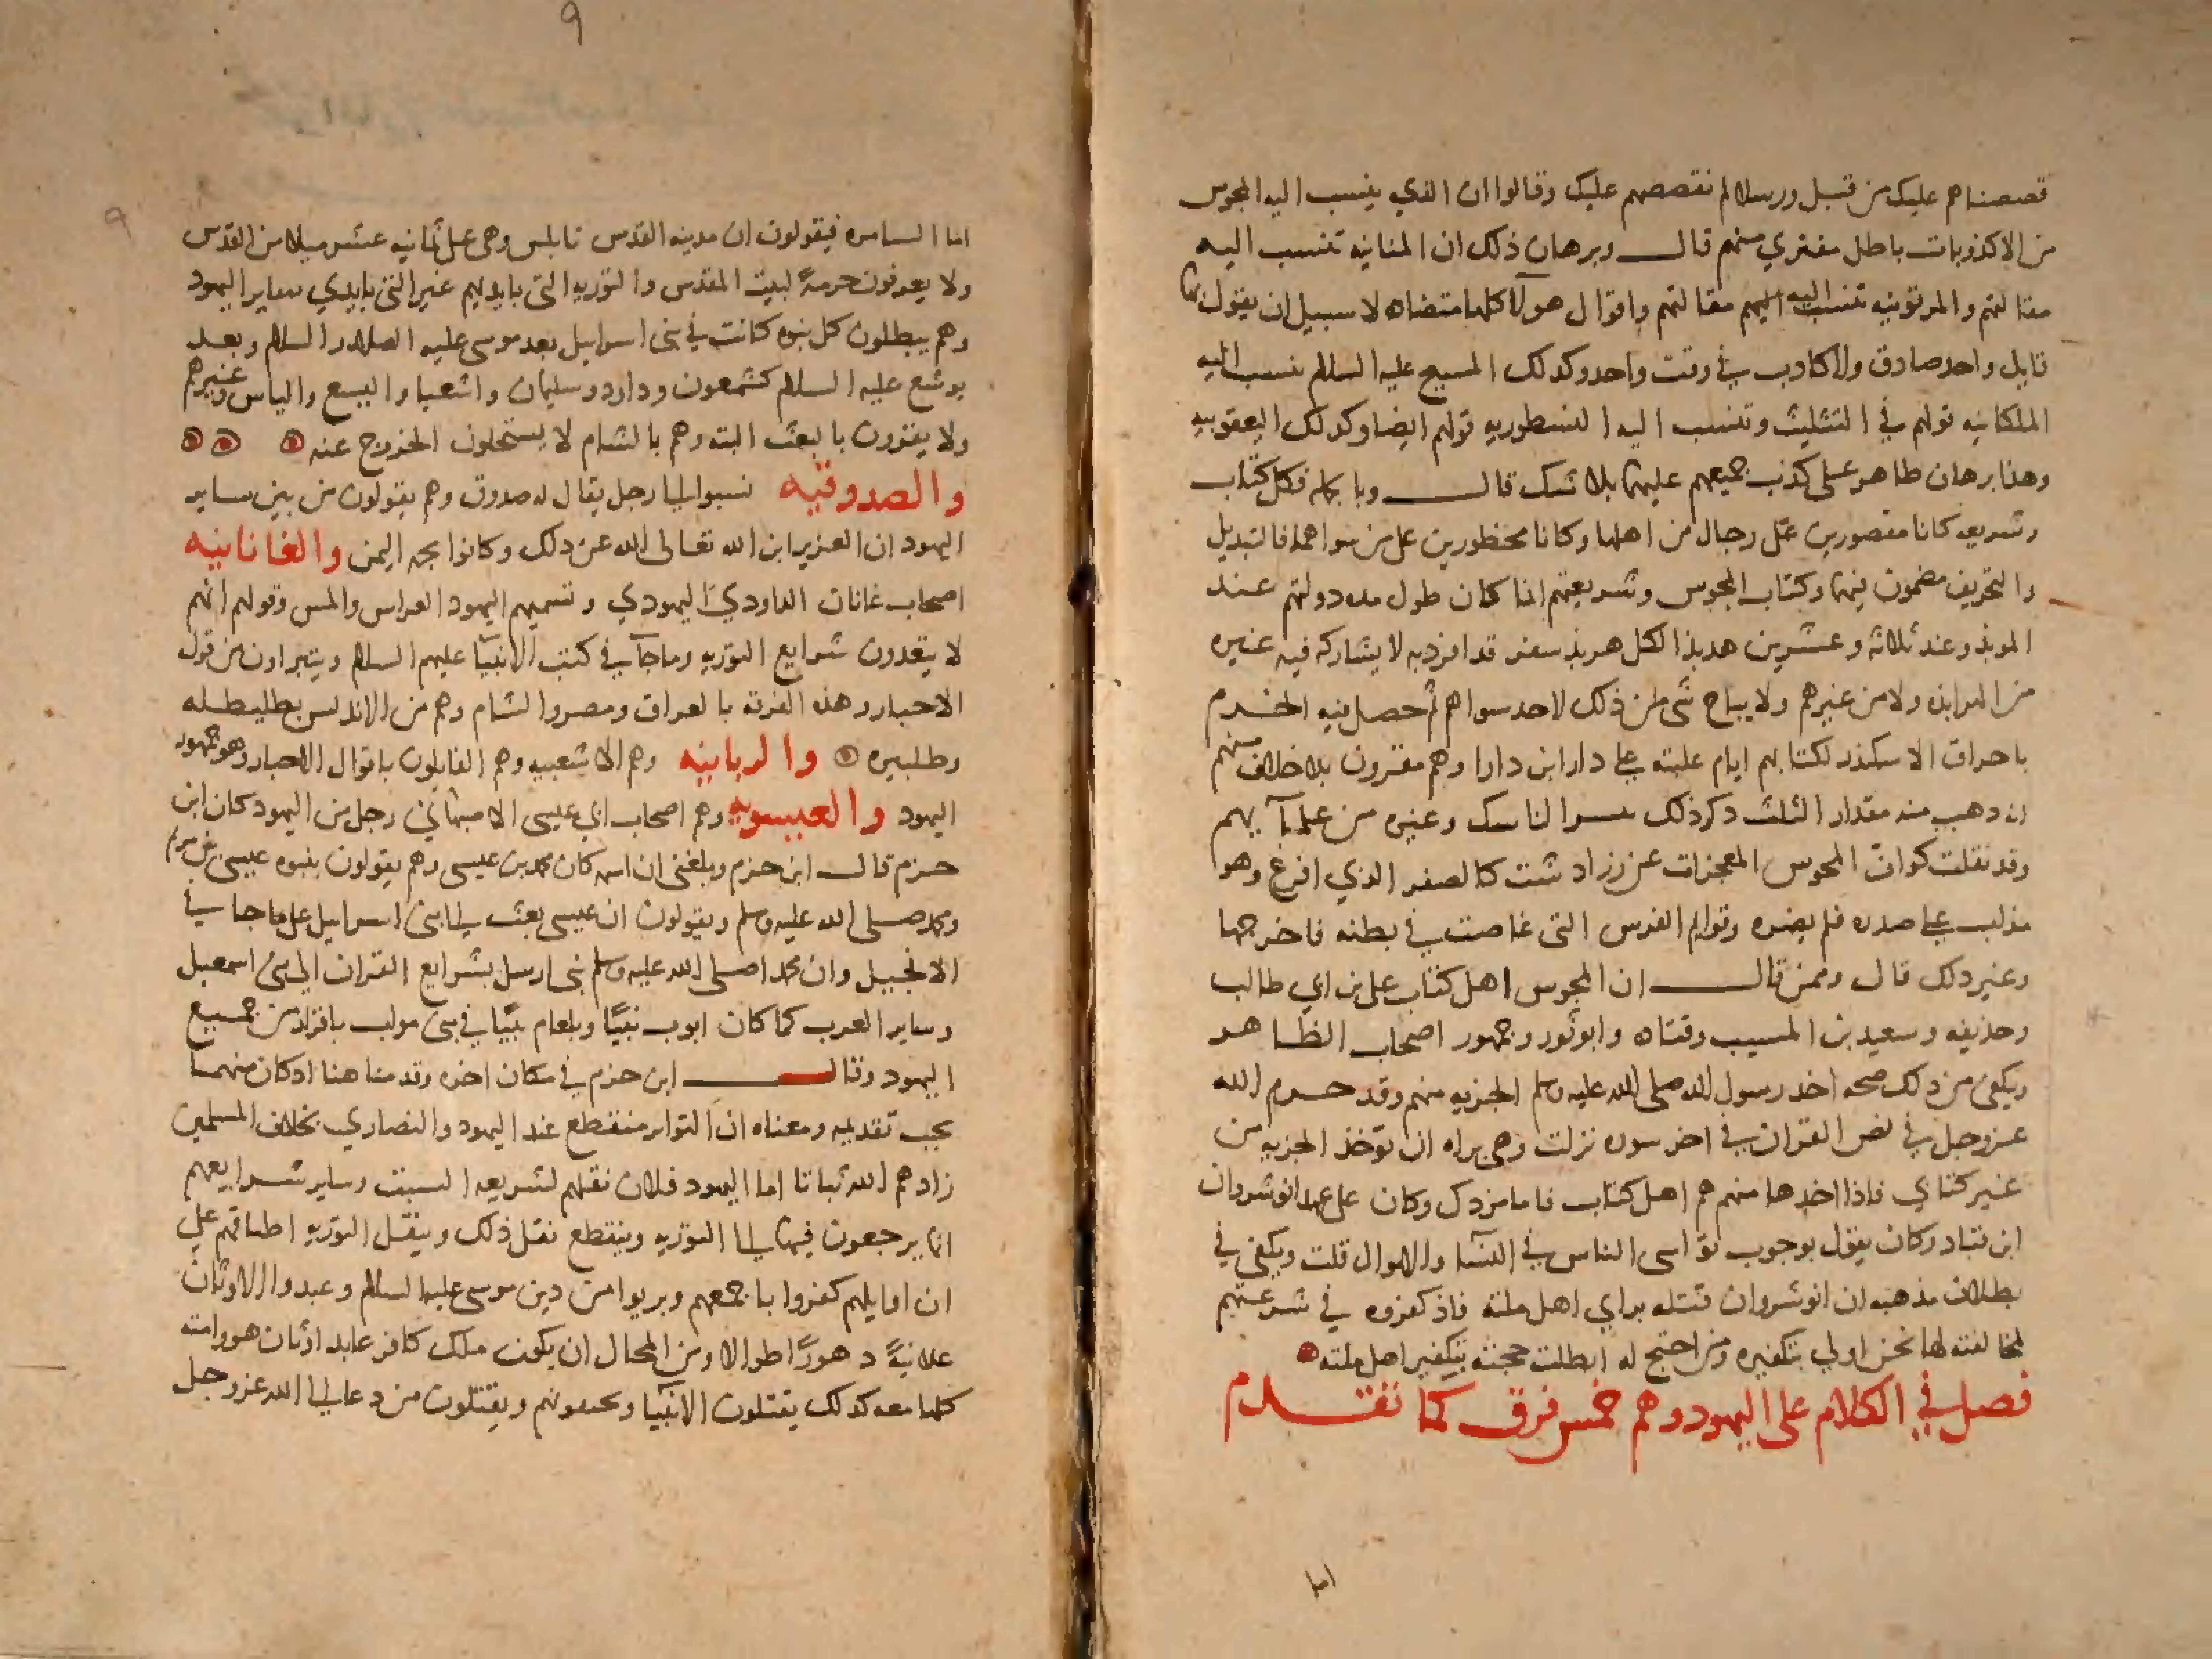 قصصناهم عليك من قبل ورسلا لم نقصصهم عليك وقالوا ان الذي ينسب اليه المجوس
من الاكذوبات باطل مفتري منهم قال وبرهان ذلك ان المنانيه تنسب اليه
مقالتهم والمرقونيه تنسب اليهم مقالتهم واقوال هولآ كلها متضاده لا سبيل ان يقول بها
قايل واحد صادق ولا كاذب في وقت واحد وكذلك المسيح عليه السلام ينسب اليه
الملكانيه قولهم في التثليث وتنسب اليه النسطوريه قولهم ايضا وكذلك اليعقوبيه
وهذا برهان ظاهر على كذب جميعهم عليهما بلا شك قال وبالجملة فكل كتاب
وشريعه كانا مقصورين على رجال من اهلها وكانا محظورين على من سواهما فالتبديل
والتحريف مضمون فيهما وكتاب المجوس وشريعتهم انما كان طول مده دولتهم عند
الموبذ وعند ثلاثة وعشرين هربذا لكل هربذ سفر قد افرد به لا يشاركه فيه غيره
من الهرابذه ولا من غيرهم ولا يباح شي من ذلك لاحد سواهم ثم حصل فيه الخرم
باحراق الاسكندر لكتابهم ايام غلبته على دارا ابن دارا وهم مقرون بلا خلاف منهم
انه ذهب منه مقدار الثلث ذكر ذلك الناسك وغيره من علمآيهم
وقد نقلت كوافّ المجوس المعجزات عن زرادشت كالصفر الذي افرغ وهو
مذاب على صدره فلم يضره وقوايم الفرس التي غاصت في بطنه فاخرجها
وغير ذلك قال وممن قال ان المجوس اهل كتاب علي بن ابي طالب
وحذيفه وسعيد بن المسيب وقتاده وابو ثور وجمهور اصحاب الظاهر
ويكفي من ذلك صحه اخذ رسول الله صلى الله عليه وسلم الجزيه منهم وقد حرم الله
عز وجل في نص القران في اخر سوره نزلت وهي براه ان توخذ الجزيه من
غير كتابي فاذا اخذها منهم هم اهل كتاب فاما مزدك وكان على عهد انوشروان
ابن قباد وكان يقول بوجوب تواسي الناس في النسآ والاموال قلت ويكفي في
بطلان مذهبه ان انوشروان قتله براي اهل ملته فاذ كفروه في شرعتهم
لمخالفته لها نحن اولي بتكفيره ومن احتج له ابطلت حجته بتكفير اهل ملته
فصل في الكلام على اليهود وهم خمس فرق كما تقدم
اما
٩
٩
اما السامره فيقولون ان مدينه القدس نابلس وهي على ثمانيه عشر ميلا من القدس
ولا يعرفون حرمةً لبيت المقدس والتوريه التي بايديهم غير التي بايدي ساير اليهود
وهم يبطلون كل نبوه كانت في بني اسرايل بعد موسى عليه الصلاه والسلام وبعد
يوشع عليه السلام كشمعون وداود وسليمان واشعيا واليسع والياس وغيرهم
ولا يقرون بالبعث البته وهم بالشام لا يستحلون الخروج عنه
والصدوقيه نسبوا الى رجل يقال له صدوق وهم يقولون من بين ساير
اليهود ان العزير ابن الله تعالى الله عن ذلك وكانوا بجهه اليمن والغانانيه
اصحاب غانان الداودي اليهودي وتسميهم اليهود العراس والمس وقولهم انهم
لا يتعدون شرايع التوريه وما جآ في كتب الانبيآ عليهم السلام ويتبراون من قول
الاحبار وهذه الفرقه بالعراق ومصر والشام وهم من الاندلس بطليطله
وطلبيره والربانيه وهم الاشعبيه وهم القايلون باقوال الاحبار وهو جمهور
اليهود والعيسويه وهم اصحاب ابي عيسى الاصبهاني رجل من اليهود كان ابن
حزم قال ابن حزم وبلغني ان اسمه كان محمد بن عيسى وهم يقولون بنبوه عيسى بن مريم
ومحمد صلى الله عليه وسلم ويقولون ان عيسى بعث الى بني اسرايل على ما جا في
الانجيل وان محمدا صلى الله عليه وسلم نبي ارسل بشرايع القران الى بني اسمعيل
وساير العرب كما كان ايوب نبيًا وبلعام نبيًا في بني مواب باقرار من جميع
اليهود وقال ابن حزم في مكان اخر وقدمنا هنا اذ كان مهما
يجب تقديمه ومعناه ان التواتر منقطع عند اليهود والنصاري بخلاف المسلمين
زادهم الله ثباتا اما اليهود فلان نقلهم لشريعه السبت وساير شرايعهم
انما يرجعون فيها الى التوريه وينقطع نقل ذلك وينقل التوريه اطباقهم على
ان اوايلهم كفروا باجمعهم وبريوا من دين موسى عليه السلام وعبدوا الاوثان
علانيةً دهورًا طوالا ومن المحال ان يكون ملك كافر عابد اوثان هو وامته
كلها معه كذلك يقتلون الانبيآ ويخنقونهم ويقتلون من دعا الى الله عز وجل